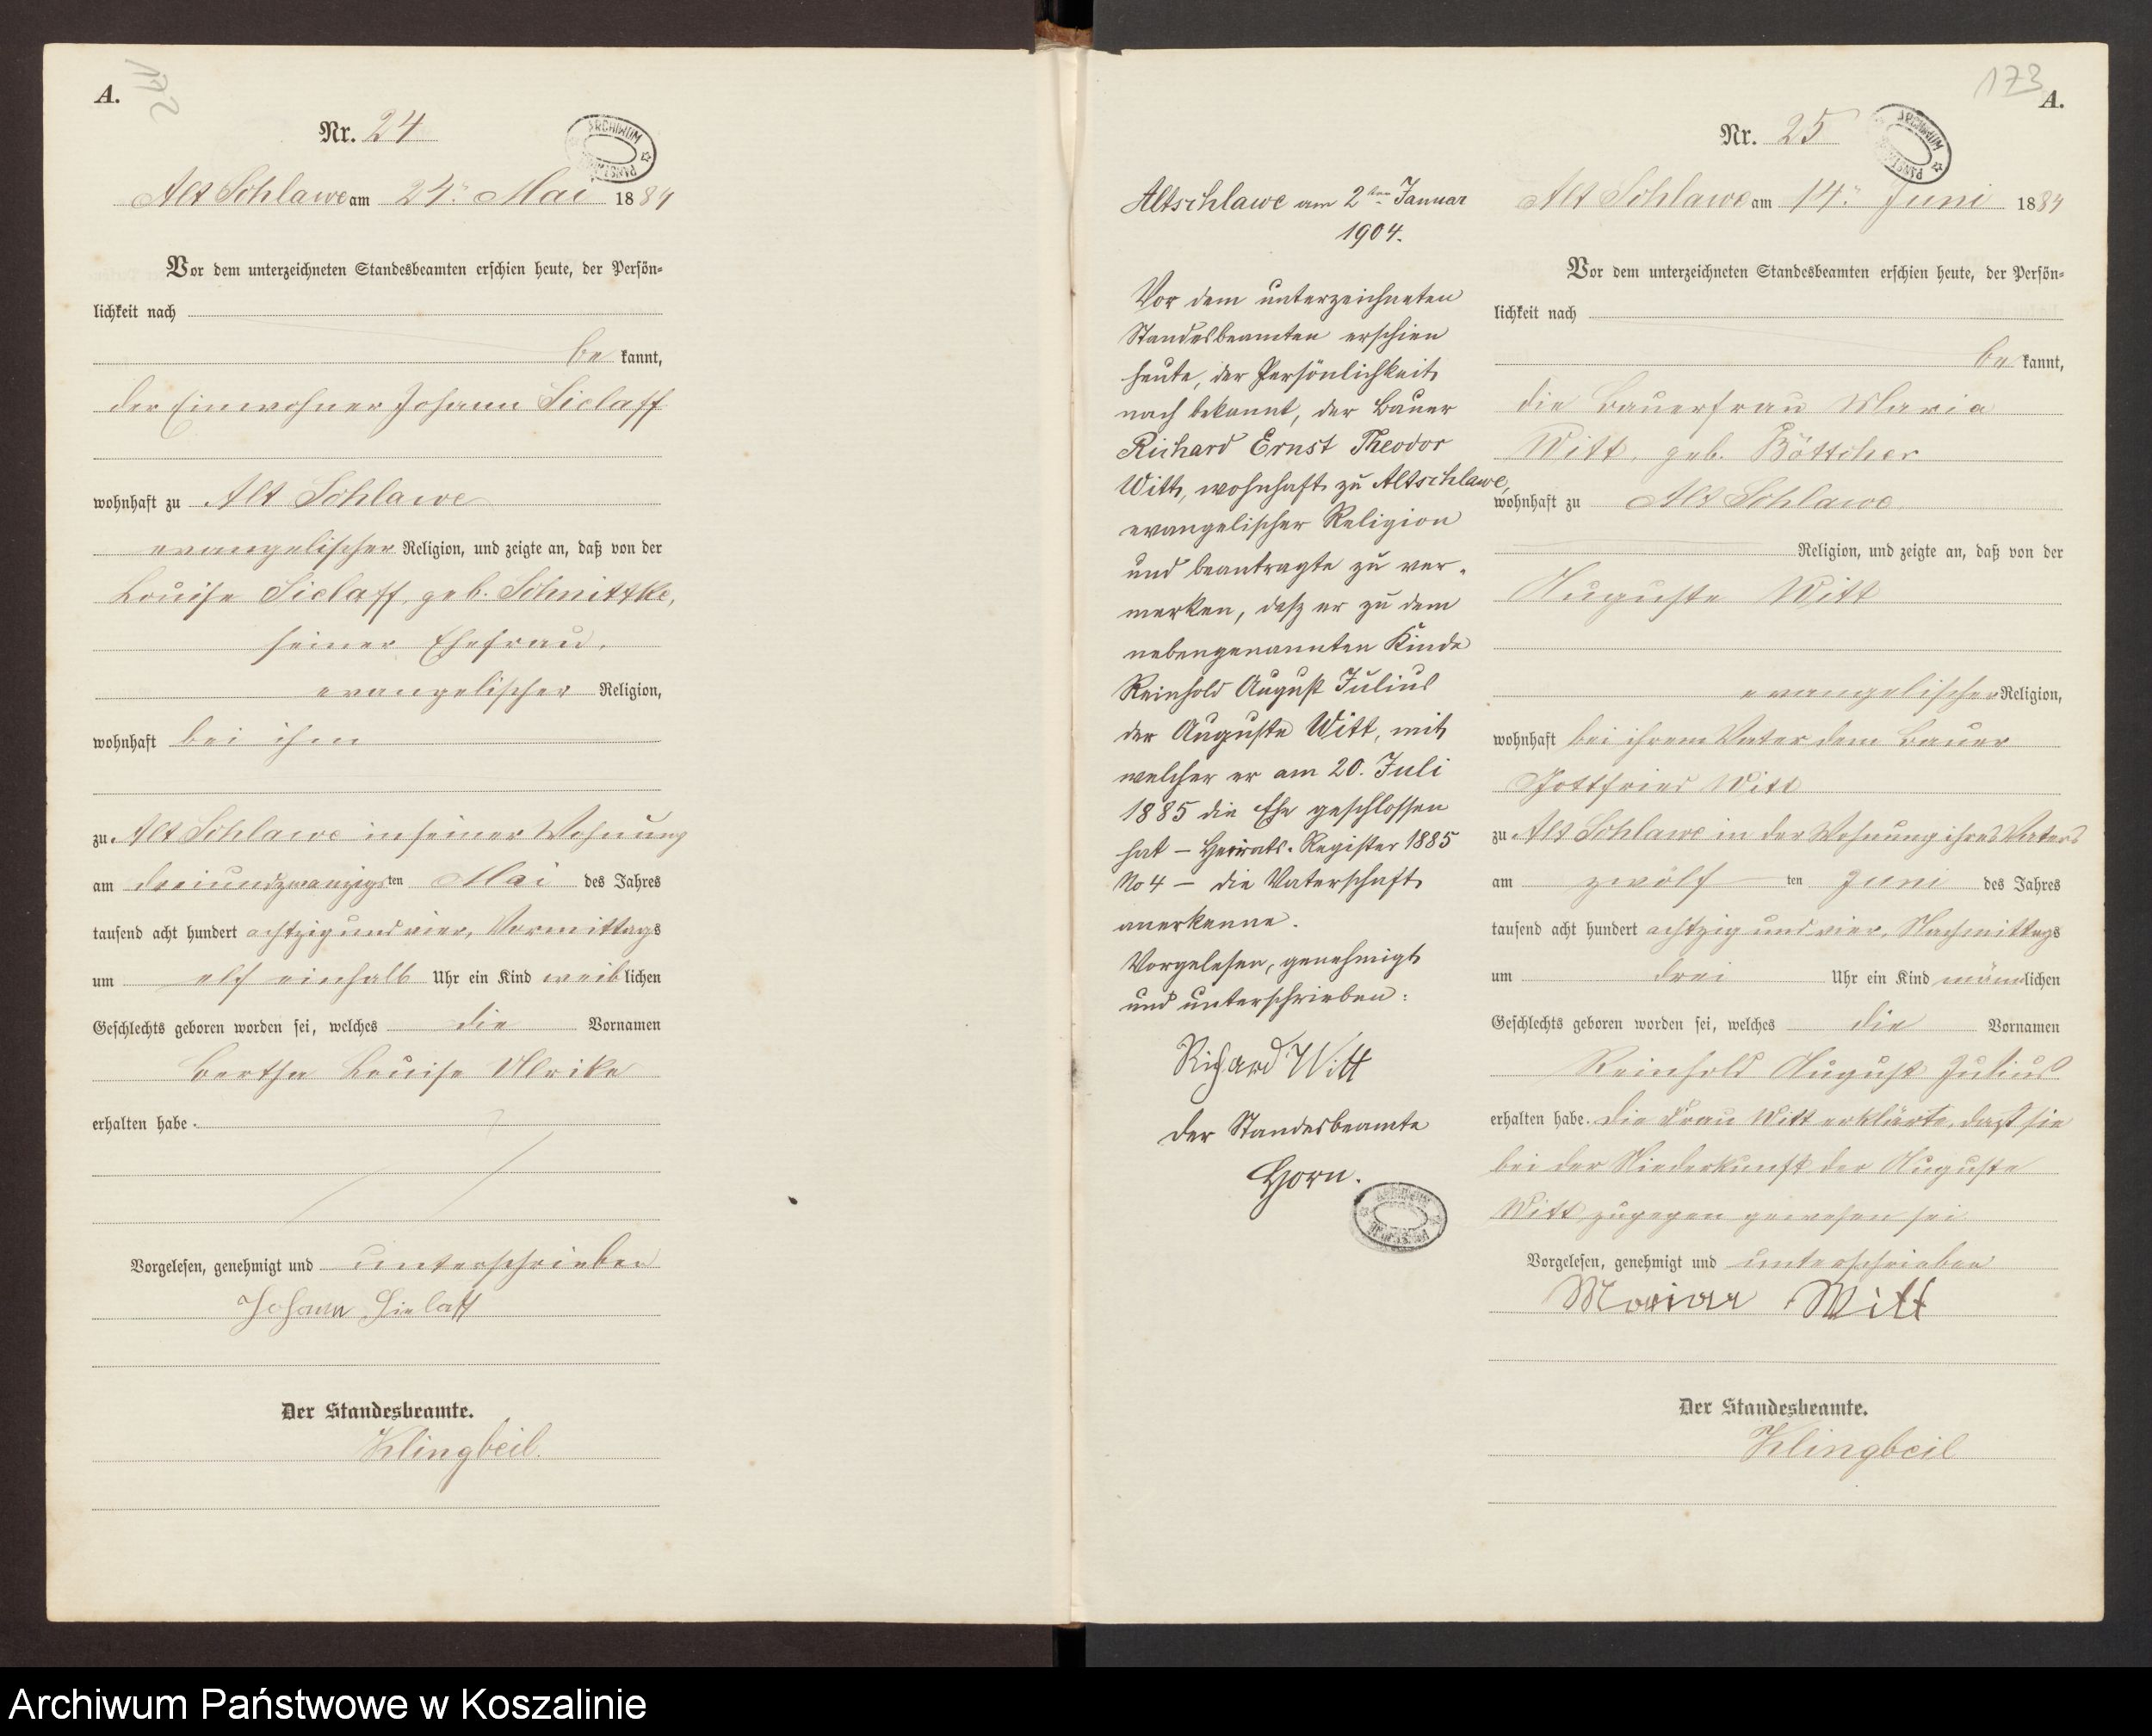 A.
172
Nr. 24
ARCHIWUM
Alt Schlawe am 24ⁿ Mai 1884
Vor dem unterzeichneten Standesbeamten erschien heute, der Persön-
lichkeit nach
be kannt,
der Einwohner Johann Sielaff
wohnhaft zu Alt Schlawe
evangelischer Religion, und zeigte an, daß von der
Louise Sielaff, geb. Schnittke,
seiner Ehefrau,
evangelischer Religion,
wohnhaft bei ihm
zu Alt Schlawe in seiner Wohnung
am dreiundzwanzigsten Mai des Jahres
tausend acht hundert achtzig und vier, Vormittags
um elf einhalb Uhr ein Kind weiblichen
Geschlechts geboren worden sei, welches die Vornamen
Bertha Louise Ulrike
erhalten habe.
Vorgelesen, genehmigt und unterschrieben
Johann Sielaff
Der Standesbeamte.
Klingbeil.
Altschlawe am 2ten Januar
1904.
Vor dem unterzeichneten
Standesbeamten erschien
heute, der Persönlichkeit
nach bekannt, der Bauer
Richard Ernst Theodor
Witt, wohnhaft zu Altschlawe,
evangelischer Religion
und beantragte zu ver-
merken, dasz er zu dem
nebengenannten Kinde
Reinhold August Julius
der Auguste Witt, mit
welcher er am 20. Juli
1885 die Ehe geschlossen
hat – Heirats-Register 1885
No 4 – die Vaterschaft
anerkenne.
Vorgelesen, genehmigt
und unterschrieben:
Richard Witt
der Standesbeamte
Horn.
173
A.
Nr. 25
ARCHIWUM
Alt Schlawe am 14ⁿ Juni 1884
Vor dem unterzeichneten Standesbeamten erschien heute, der Persön-
lichkeit nach
be kannt,
die Bauerfrau Maria
Witt, geb. Böttcher
wohnhaft zu Alt Schlawe
Religion, und zeigte an, daß von der
Auguste Witt
evangelischer Religion,
wohnhaft bei ihrem Vater dem Bauer
Gottfried Witt
zu Alt Schlawe in der Wohnung ihres Vaters
am zwölf ten Juni des Jahres
tausend acht hundert achtzig und vier, Nachmittags
um drei Uhr ein Kind männlichen
Geschlechts geboren worden sei, welches die Vornamen
Reinhold August Julius
erhalten habe. Die Frau Witt erklärte, daß sie
bei der Niederkunft der Auguste
Witt zugegen gewesen sei
Vorgelesen, genehmigt und unterschrieben
Maria Witt
Der Standesbeamte.
Klingbeil
Archiwum Państwowe w Koszalinie